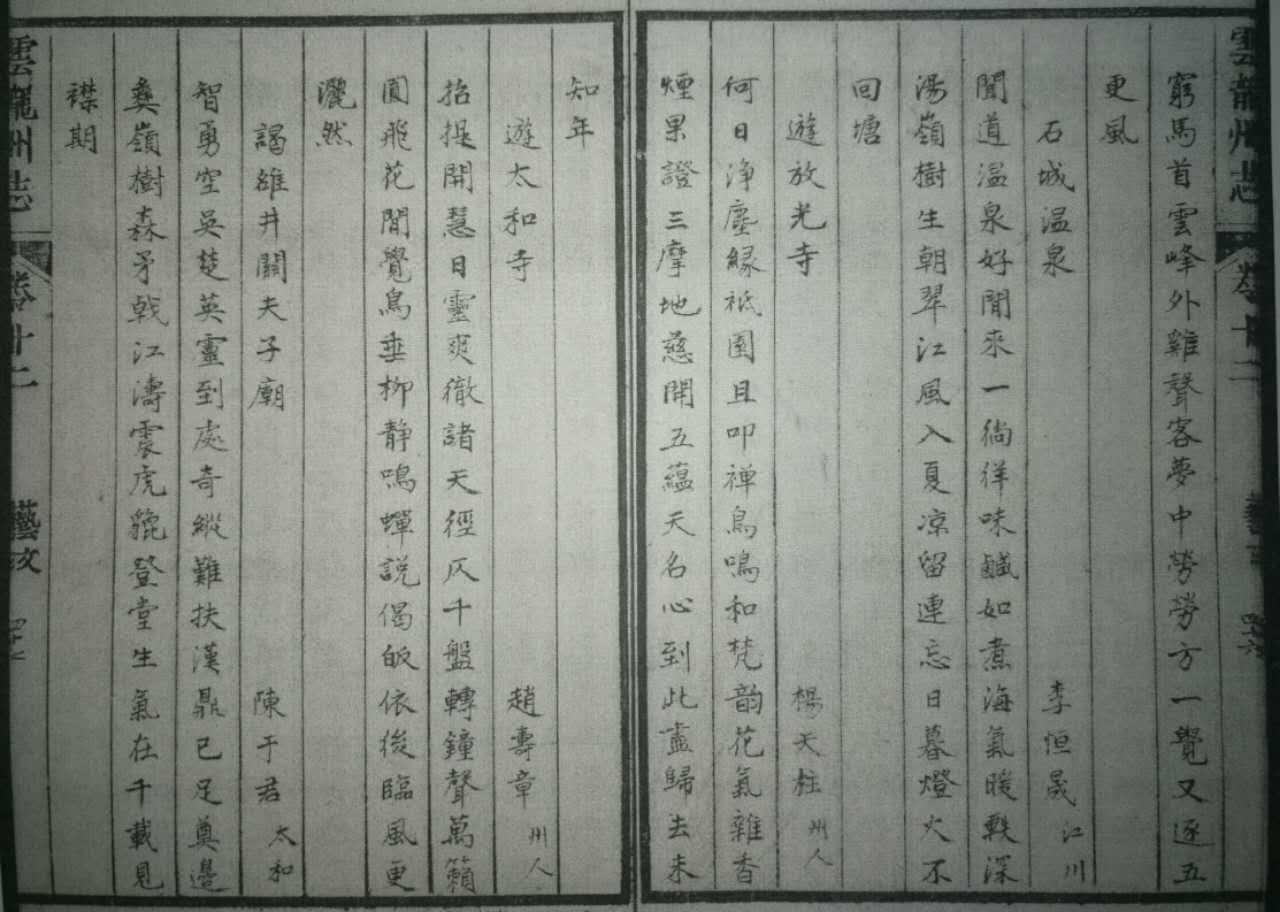 雲龍州志 卷十二 藝文
窮馬首雲峰外雞聲客夢中勞勞方一覺又逐五
更風
石城温泉 李恒晟 江川
聞道温泉好閒來一徜徉味鹹如煮海氣暖軼深
湯嶺樹生朝翠江風入夏凉留連忘日暮燈火不
回塘
遊放光寺 楊天柱 州人
何日浄塵緣祇園且叩禅鳥鳴和梵韵花氣雜香
煙果證三摩地慈開五蘊天名心到此盡歸去未
知年
遊太和寺 趙壽章 州人
招提開慧日靈爽徹諸天徑仄千盤轉鐘聲萬籟
圓飛花閒覺鳥垂柳静鳴蟬説偈皈依後臨風更
灑然
謁雒井關夫子廟 陳于君 太和
智勇空吳楚英靈到處奇縱難扶漢鼎已足奠邊
彝嶺樹森矛戟江濤震虎貔登堂生氣在千載見
襟期
雲龍州志 卷十二 藝文